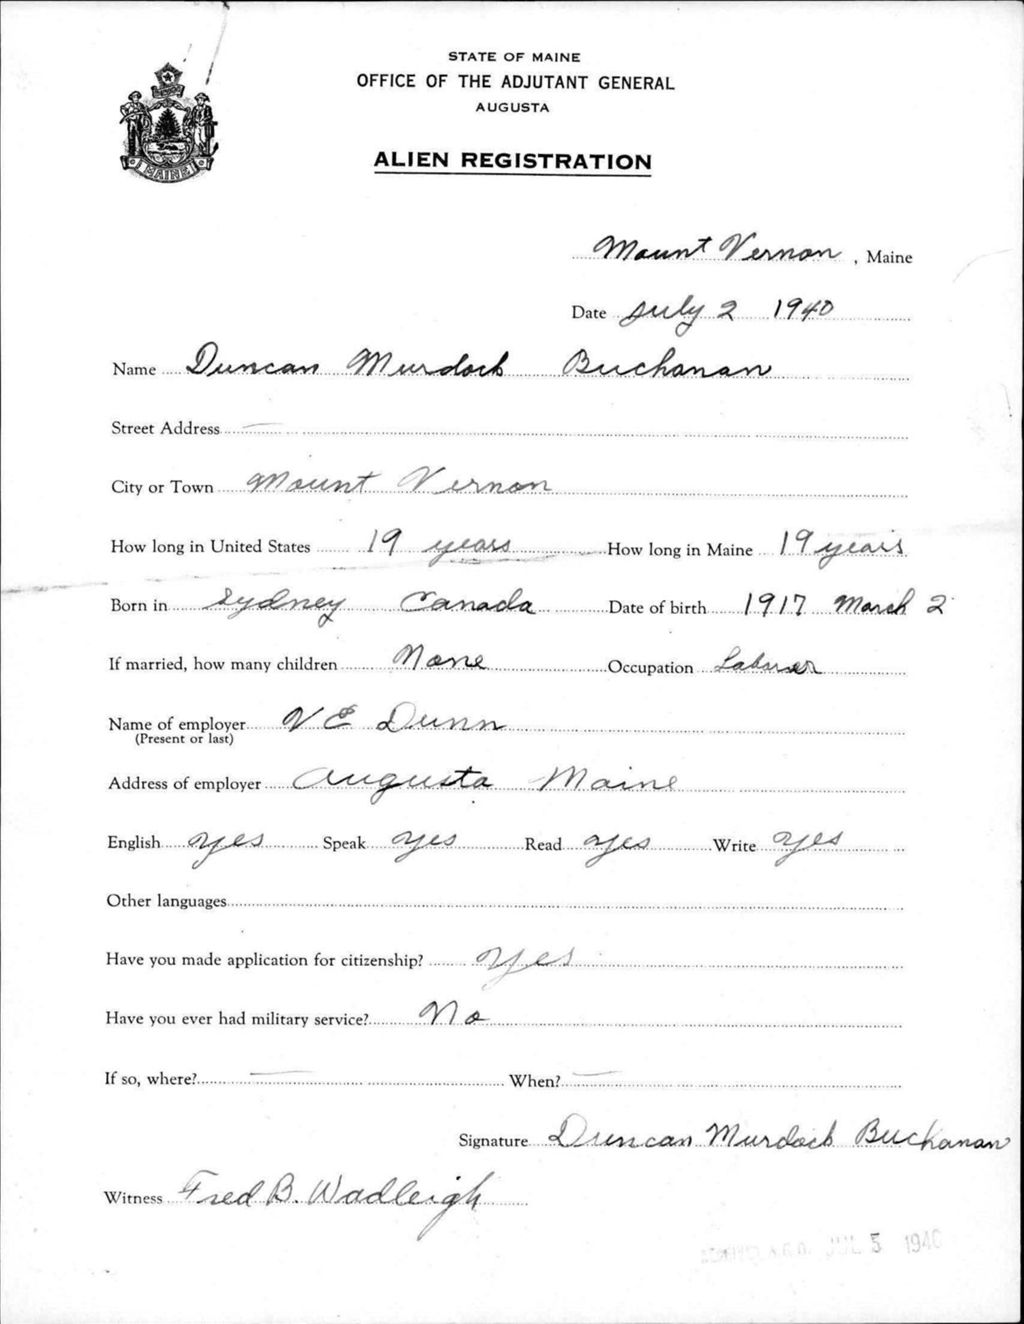 STATE OF MAINE
OFFICE OF THE ADJUTANT GENERAL
AUGUSTA
ALIEN REGISTRATION
MAINE
Mount Vernon, Maine
Date July 2 1940
Name Duncan Murdock Buchanan
Street Address —
City or Town Mount Vernon
How long in United States 19 years How long in Maine 19 years
Born in Sydney Canada Date of birth 1917 March 2
If married, how many children None Occupation Laborer
Name of employer V E Dunn
(Present or last)
Address of employer Augusta Maine
English yes Speak yes Read yes Write yes
Other languages
Have you made application for citizenship? yes
Have you ever had military service? No
If so, where? — When? —
Signature Duncan Murdock Buchanan
Witness Fred B. Wadleigh
A.G.O. JUL 5 1940